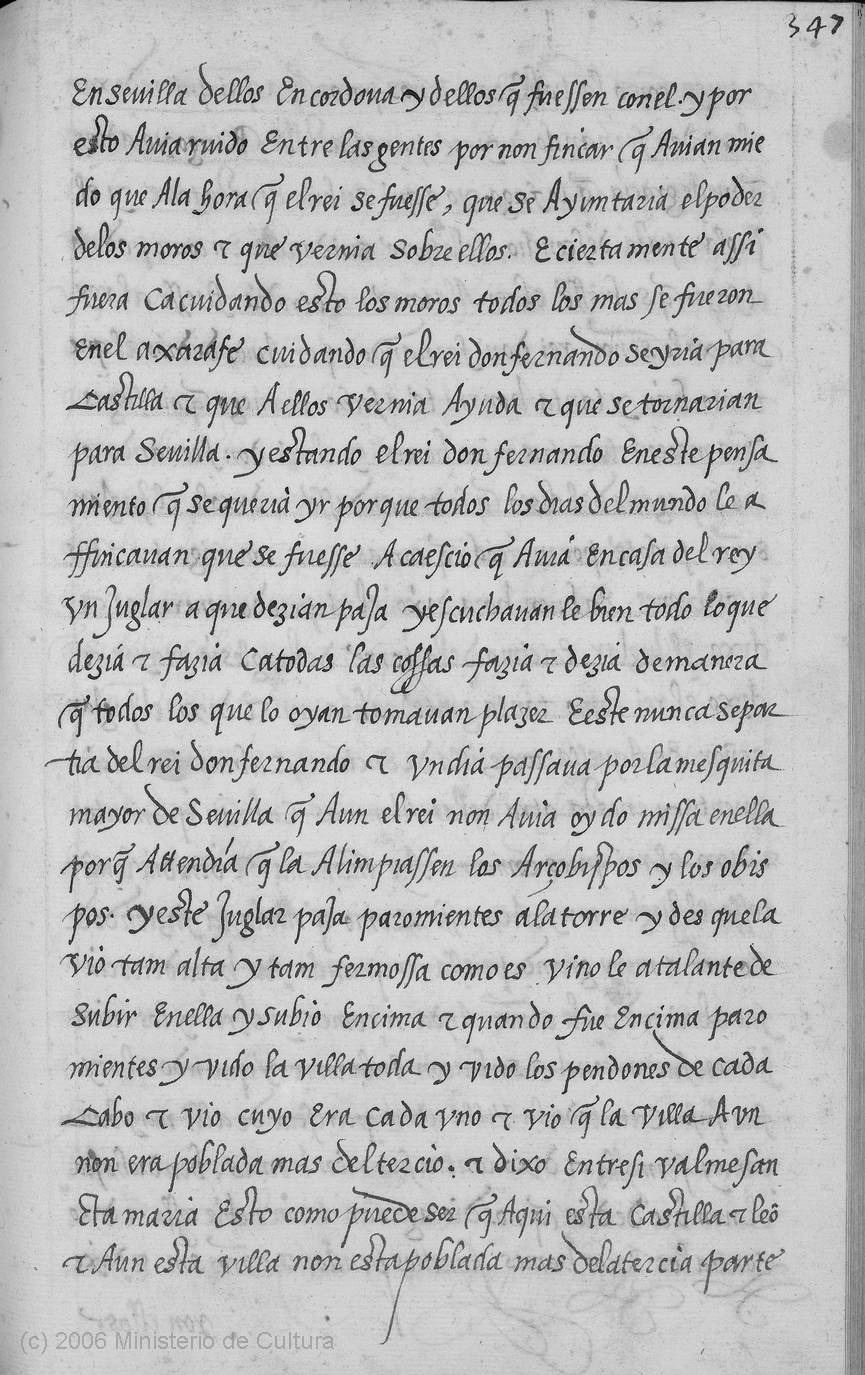 347
En sevilla dellos En cordova y dellos q̃ fuessen con el. y por
esto Avia ruido Entre las gentes por non fincar q̃ Avian mie
do que A la hora q̃ el rei se fuesse, que se Ayuntaria el poder
de los moros τ que vernia sobre ellos. E ciertamente assi
fuera Ca cuidando esto los moros todos los mas se fueron
En el axarafe cuidando q̃ el rei don fernando se yria para
Castilla τ que A ellos vernia Ayuda τ que se tornarian
para Sevilla. y estando el rei don fernando En este pensa
miento q̃ se queria yr porque todos los dias del mundo le a
ffincavan que se fuesse Acaescio q̃ Avia En casa del rey
vn Juglar a que dezian paJa y escuchavan le bien todo lo que
dezia τ fazia Ca todas las cossas fazia τ dezia de manera
q̃ todos los que lo oyan tomavan plazer E este nunca se par
tia del rei don fernando τ vn dia passava por la mesquita
mayor de Sevilla q̃ Aun el rei non Avia oydo missa en ella
porq̃ Attendía q̃ la Alimpiassen los Arçobispos y los obis
pos. y este Juglar paJa paro mientes a la torre y des que la
vio tam alta y tam fermossa como es vino le a talante de
subir En ella y subio Encima τ quando fue Encima paro
mientes y vido la villa toda y vido los pendones de cada
Cabo τ vio cuyo Era cada vno τ vio q̃ la villa Avn
non era poblada mas del tercio. τ dixo Entre si valme san
cta maria Esto como puede ser q̃ Aqui esta Castilla τ leõ
τ Aun esta villa non esta poblada mas de la tercia parte
(c) 2006 Ministerio de Cultura